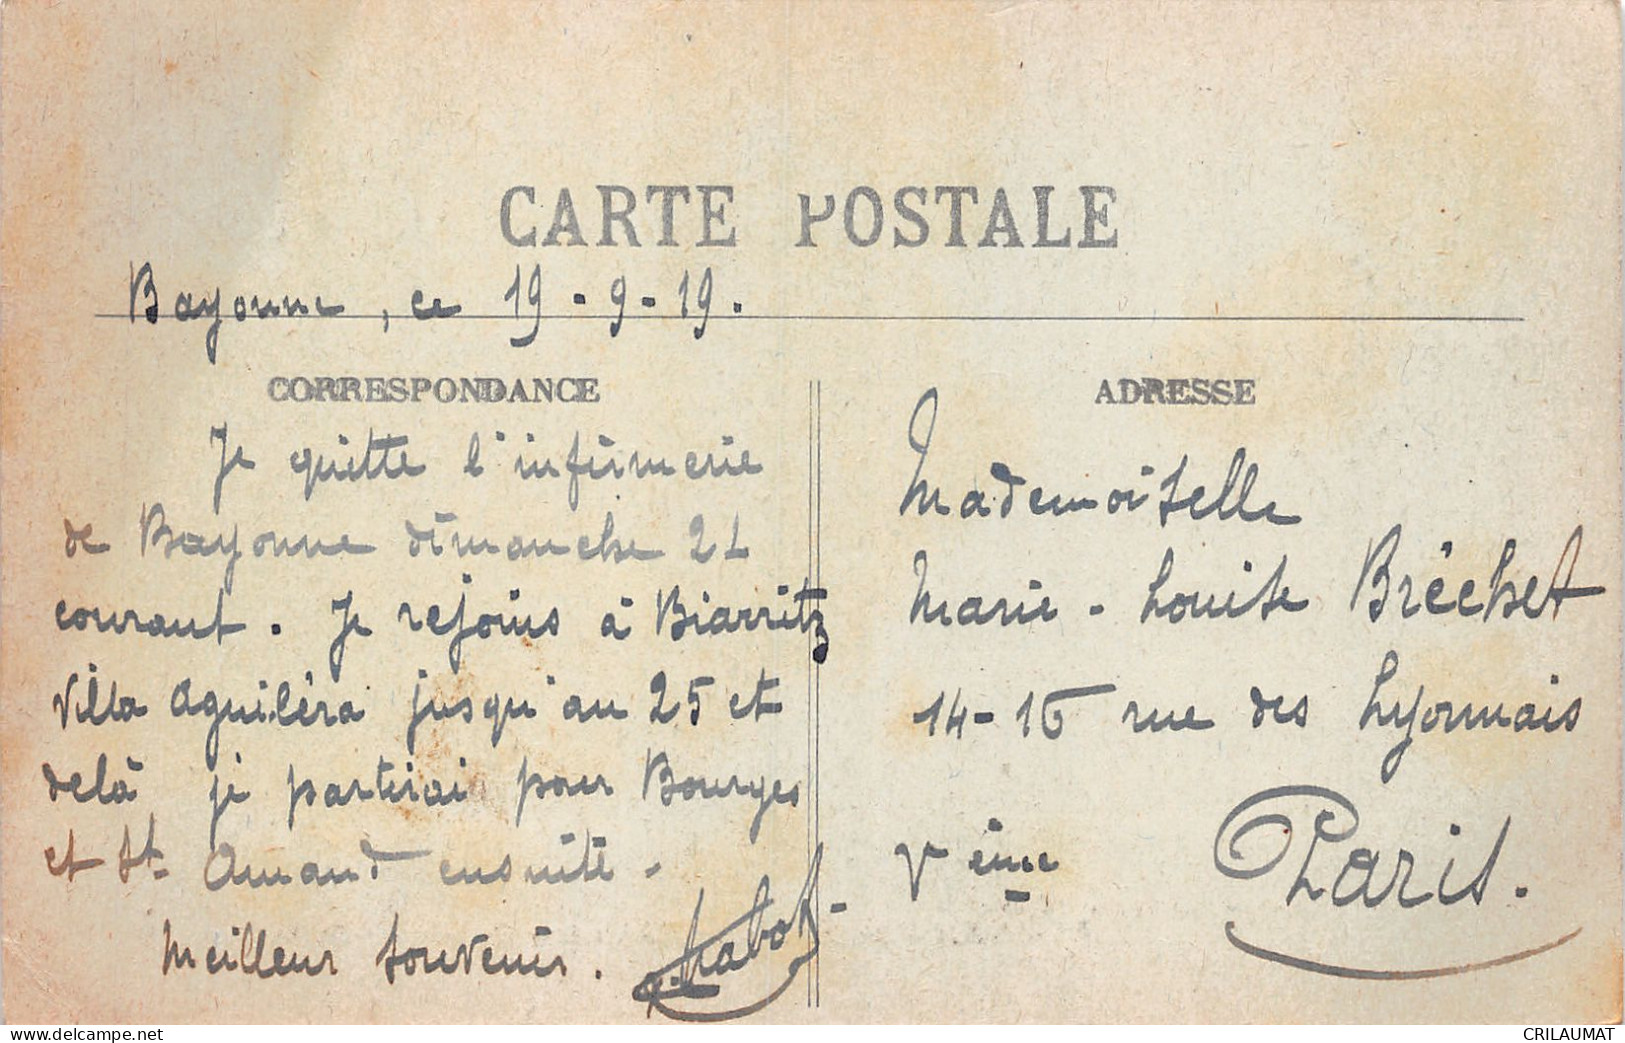 CARTE POSTALE
Bayonne, ce 19-9-19.
CORRESPONDANCE
Je quitte l'infirmerie
de Bayonne dimanche 21
courant. Je rejoins à Biarritz
villa Aguiléra jusqu'au 25 et
delà je partirai pour Bourges
et St Amand ensuite.
Meilleur souvenir.
ADRESSE
Mademoiselle
Marie-Louise Bréchet
14-16 rue des Lyonnais
Vème Paris.
www.delcampe.net
CRILAUMAT